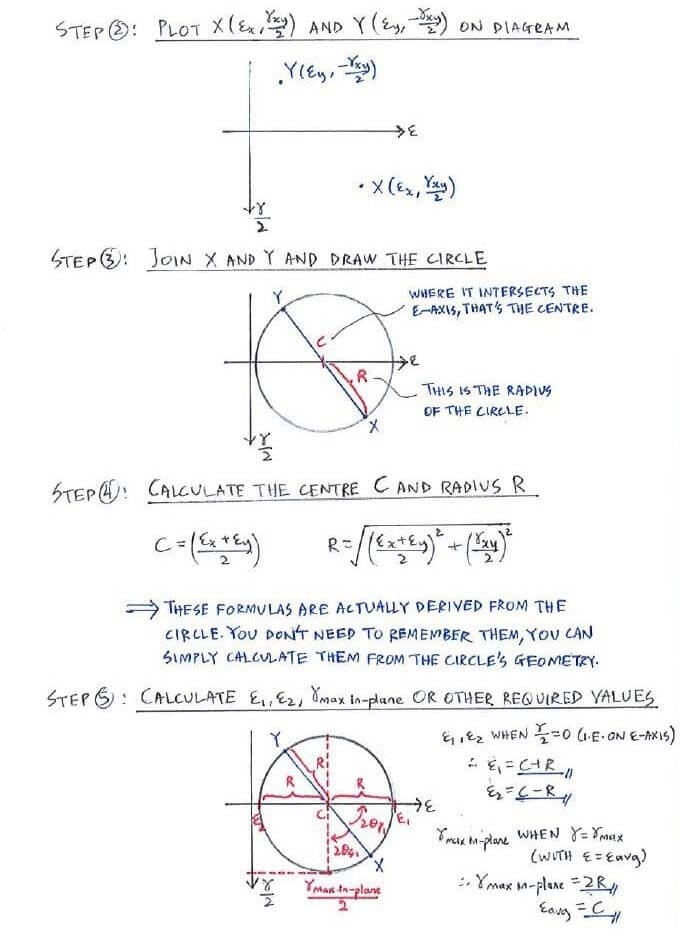 STEP ②: PLOT X(εx, γxy/2) AND Y(εy, -γxy/2) ON DIAGRAM
Y(εy, -γxy/2)
ε
X(εx, γxy/2)
γ/2
STEP ③: JOIN X AND Y AND DRAW THE CIRCLE
Y
WHERE IT INTERSECTS THE
ε-AXIS, THAT'S THE CENTRE.
C
ε
R
THIS IS THE RADIUS
OF THE CIRCLE.
X
γ/2
STEP ④: CALCULATE THE CENTRE C AND RADIUS R
C = ((εx + εy)/2) R = √(((εx+εy)/2)² + (γxy/2)²)
⇒ THESE FORMULAS ARE ACTUALLY DERIVED FROM THE
CIRCLE. YOU DON'T NEED TO REMEMBER THEM, YOU CAN
SIMPLY CALCULATE THEM FROM THE CIRCLE'S GEOMETRY.
STEP ⑤: CALCULATE ε1, ε2, γmax in-plane OR OTHER REQUIRED VALUES
Y
R
R R
ε
ε2 C ε1
2θp1
2θs1
X
γmax in-plane/2
γ/2
ε1, ε2 WHEN γ/2 = 0 (I.E. ON ε-AXIS)
∴ ε1 = C+R
ε2 = C-R
γmax in-plane WHEN γ = γmax
(WITH ε = εavg)
∴ γmax in-plane = 2R
εavg = C